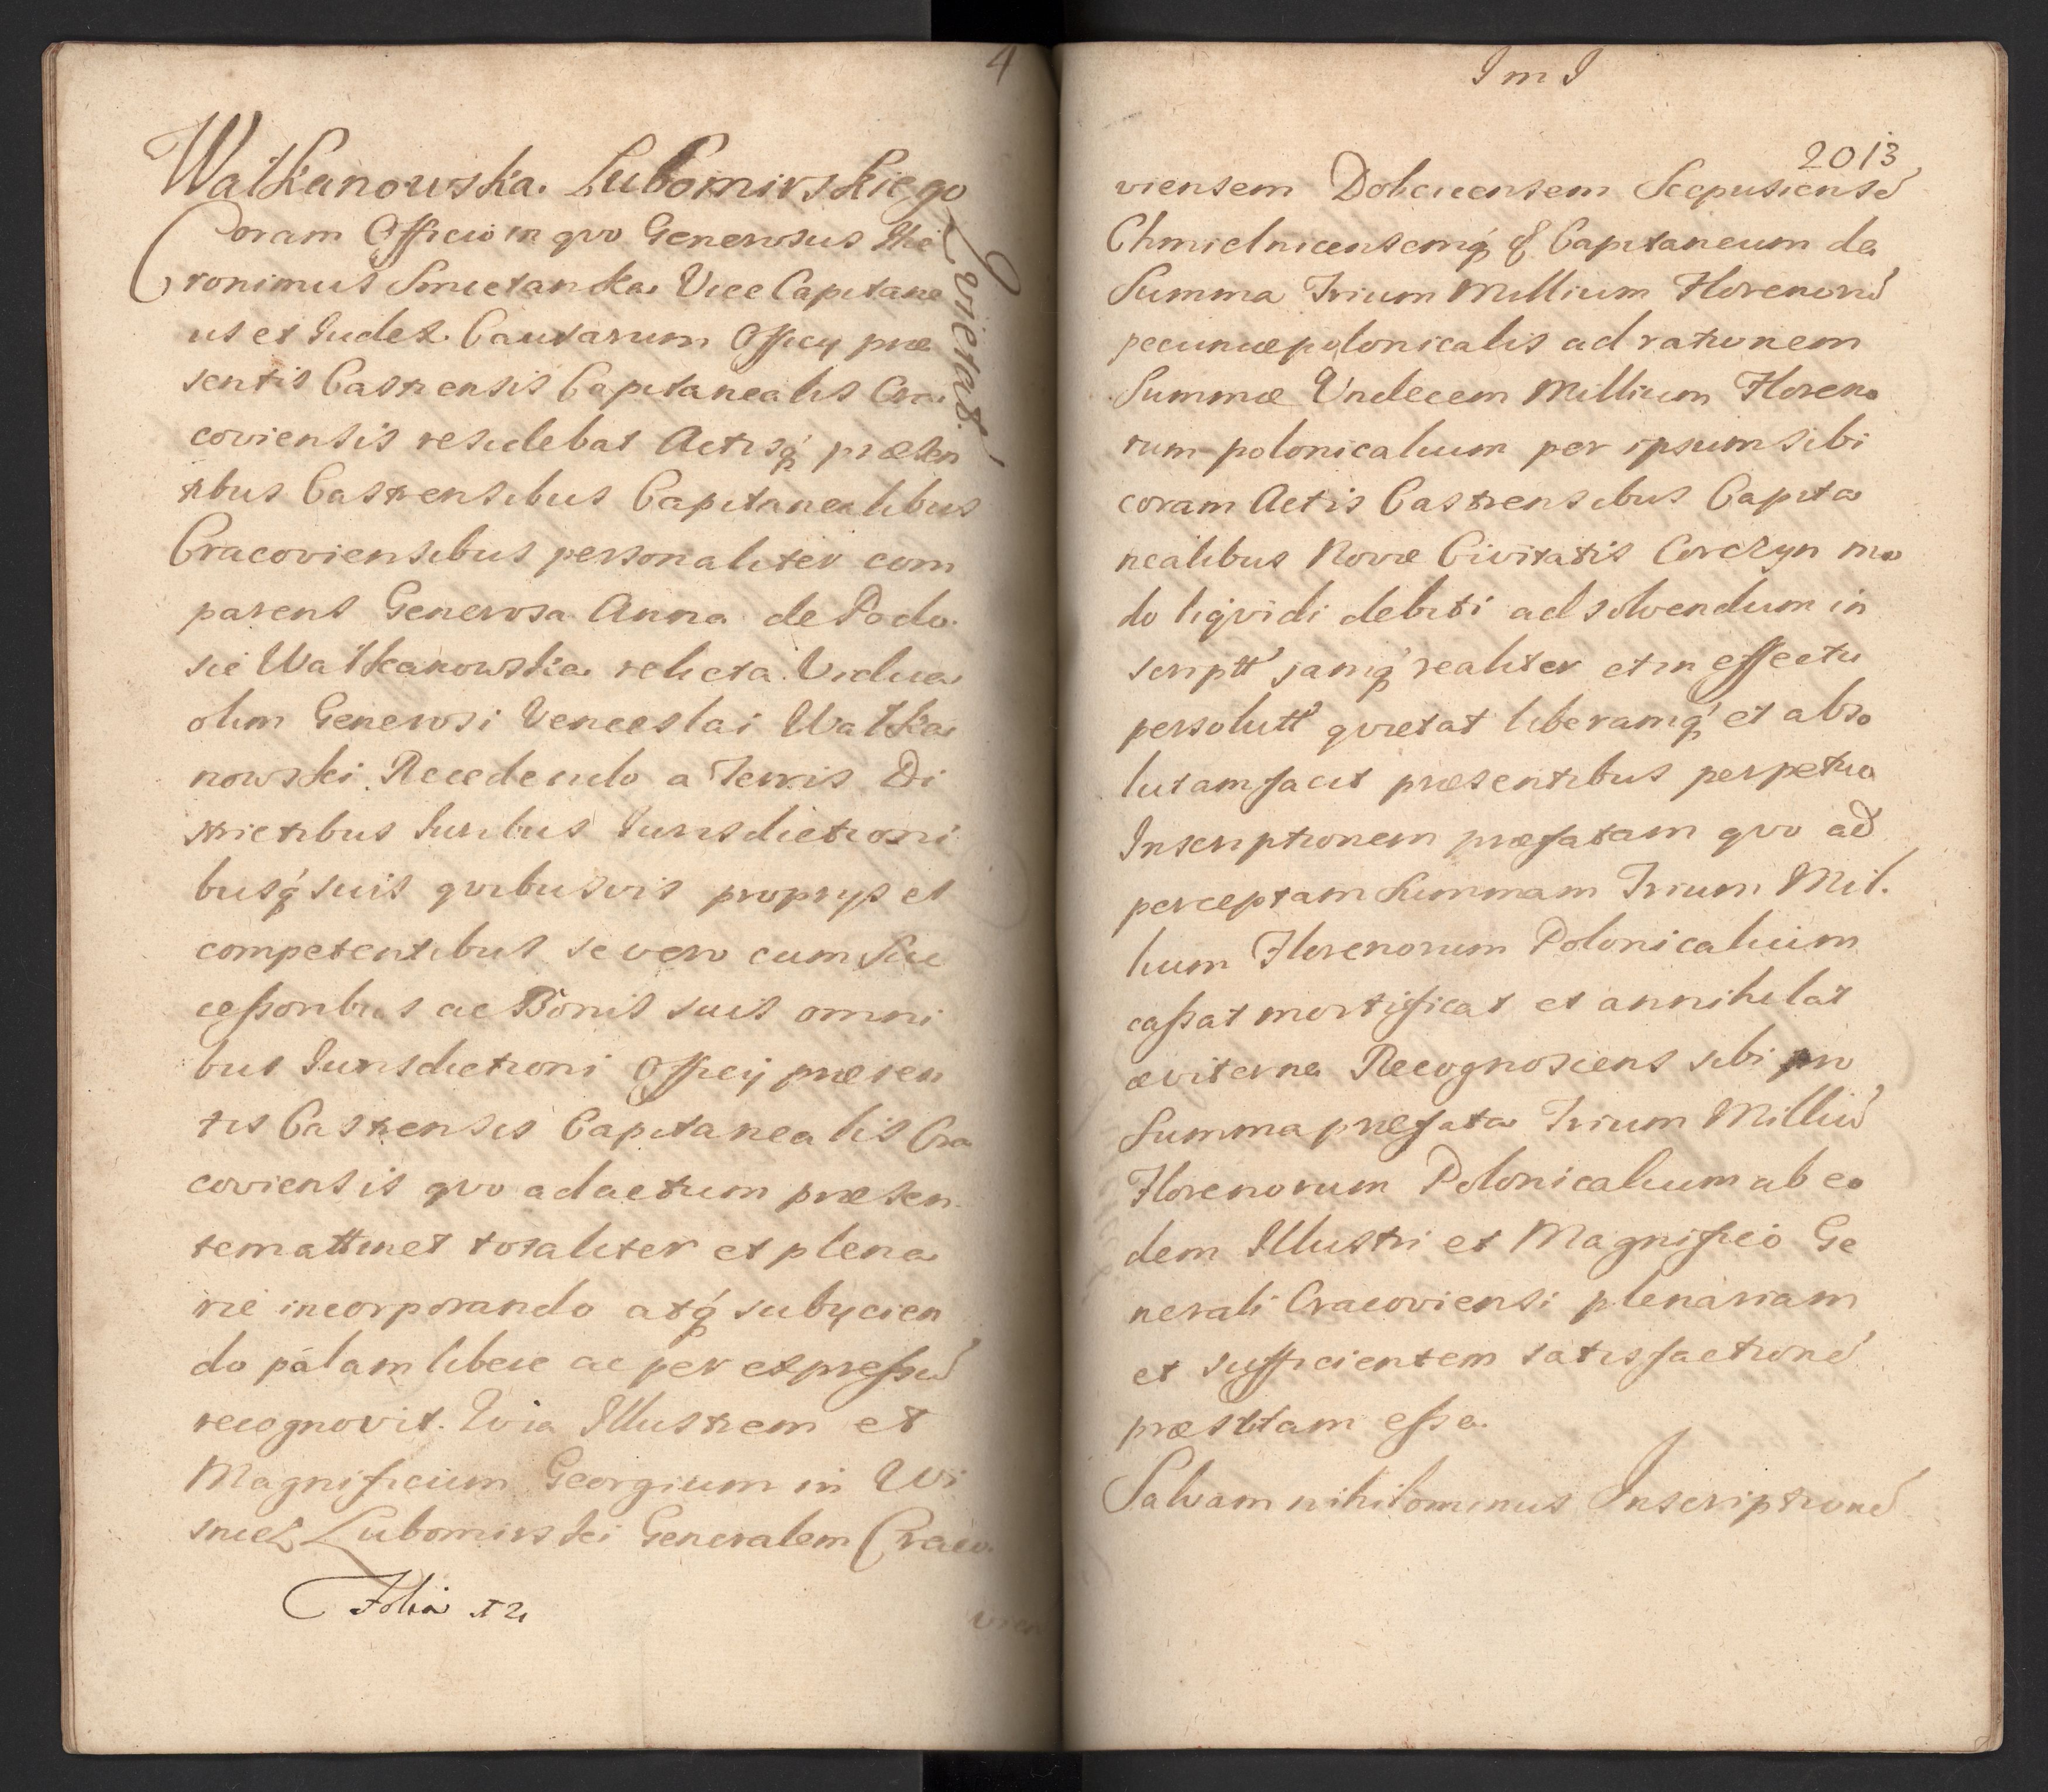 4
Watkanowska Lubomirskiego
Qvietat.
Coram Officio in qvo Generosus Hie
ronimus Smietanka Vice Capitane
us et Iudex Causarum Officy præ
sentis Castrensis Capitanealis Cra
coviensis residebat Actisq́ præsen
tibus Castrensibus Capitanealibus
Cracoviensibus personaliter com
parens Generosa Anna de Podo
sie Watkanowska relicta Vidua
olim Generosi Venceslai Watka
nowski Recedendo a Terris Di
strictibus Iuribus Iurisdictioni
busq́ suis qvibusvis proprys et
competentibus se vero cum Suc
cessoribus ac Bonis suis omni
bus Iurisdictioni Officÿ præsen
tis Castrensis Capitanealis Cra
coviensis qvo ad actum præsen
tem attinet totaliter et plena
rie incorporando atq́ subycien
do pálam libere ac per expressũ
recognovit. Qvia Illustrem et
Magnificum Georgium in Wi
snicz Lubomirski Generalem Craco
Folia 52
vien
I m I
2013
viensem Dobcicensem Scepusiensẽ
Chmielnicensemq́ & Capitaneum de
Summa Trium Millium Florenorũ
pecuniæ polonicalis ad rationem
Summæ Vndecem Millium Floreno
rum polonicalium per ipsum sibi
coram Actis Castrensibus Capita
nealibus Novæ Civitatis Corczyn mo
do liqvidi debiti ad solvendum in
scriptt jamq́ realiter et in effectu
persolutt qvietat liberamq́ et abso
lutam facit præsentibus perpetuo
Inscriptionem præfatam qvo ad
perceptam Summam Trium Mil
lium Florenorum Polonicalium
cassat mortificat et annihilat
æviterne Recognoscens sibi pro
Summa præfata Trium Milliũ
Florenorum Polonicalium ab eo
dem Illustri et Magnifico Ge
nerali Cracoviensi plenariam
et sufficientem satisfactionẽ
præstitam esse.
Salvam nihilominus Inscriptionẽ